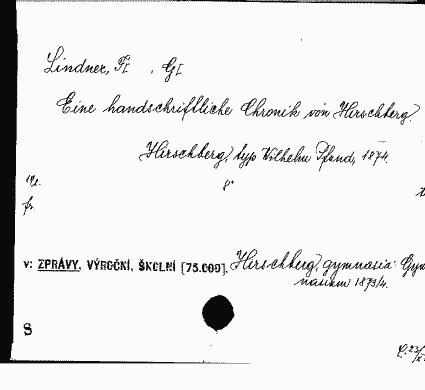 Lindner, Fr. , Gr.
Eine handschriftliche Chronik von Hirschberg.
Hirschberg, typ Wilhelm Pfund, 1874.
8°
fr.
v: ZPRÁVY, VÝROČNÍ, ŠKOLNÍ [75.009]. Hirschberg, gymnasia: Gym
nasium 1873/4.
8